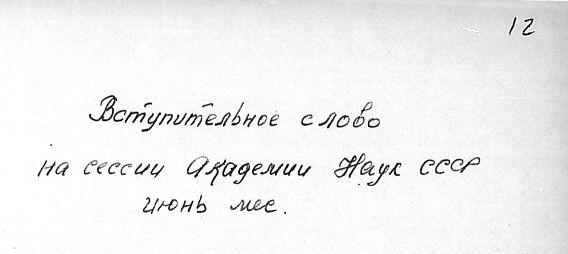 12
Вступительное слово
на сессии Академии Наук СССР
июнь мес.